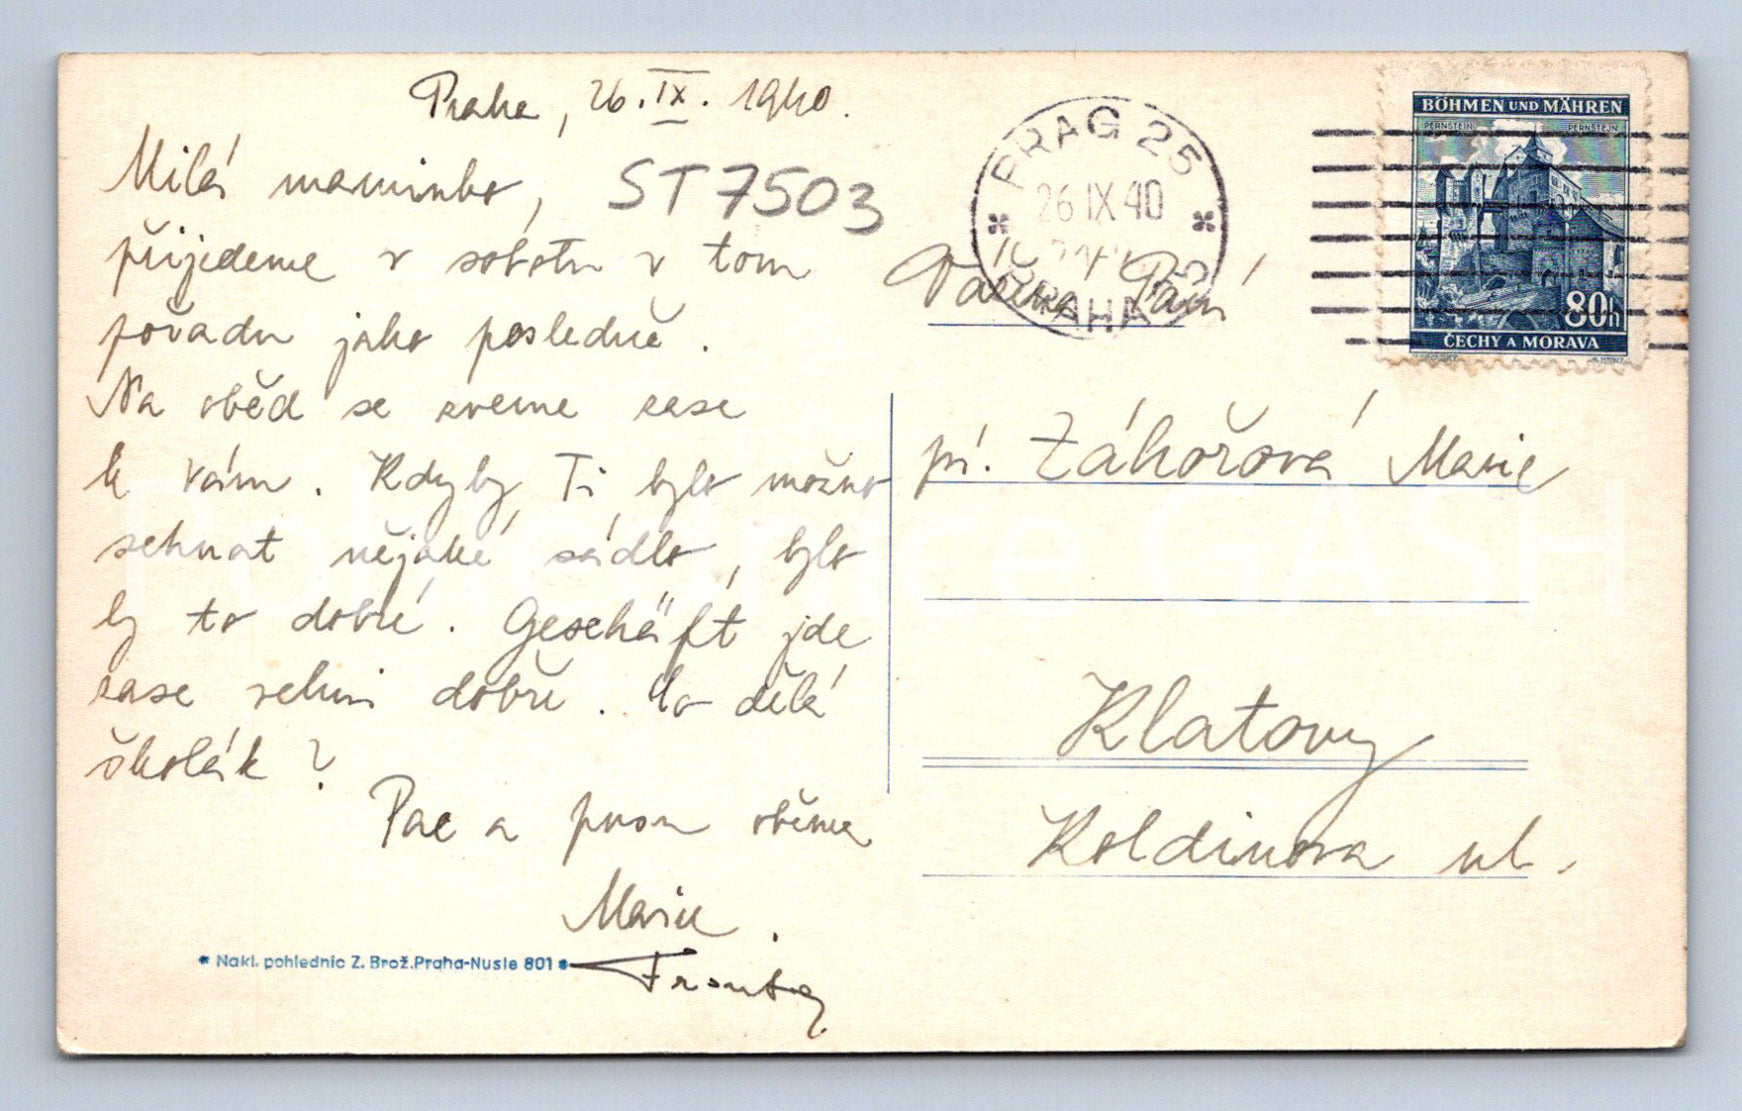 Praha, 26. IX. 1940.
Milá maminko,
ST 7503
přijedeme v sobotu v tom
pořadu jako posledně.
Na oběd se zveme zase
k vám. Kdyby Ti bylo možno
sehnat nějaké sádlo, bylo
by to dobré. Geschäft jde
zase velmi dobře. Co dělá
školák?
Pac a pusu oběma
Marie.
Frantey
* Nakl. pohlednic Z. Brož. Praha-Nusle 801 *
PRAG 25
26 IX 40
PRAHA 25
BÖHMEN UND MÄHREN
PERNSTEIN PERNŠTEJN
80h
ČECHY A MORAVA
Vážená Paní
pí. Záhořová Marie
Klatovy
Koldinova ul.